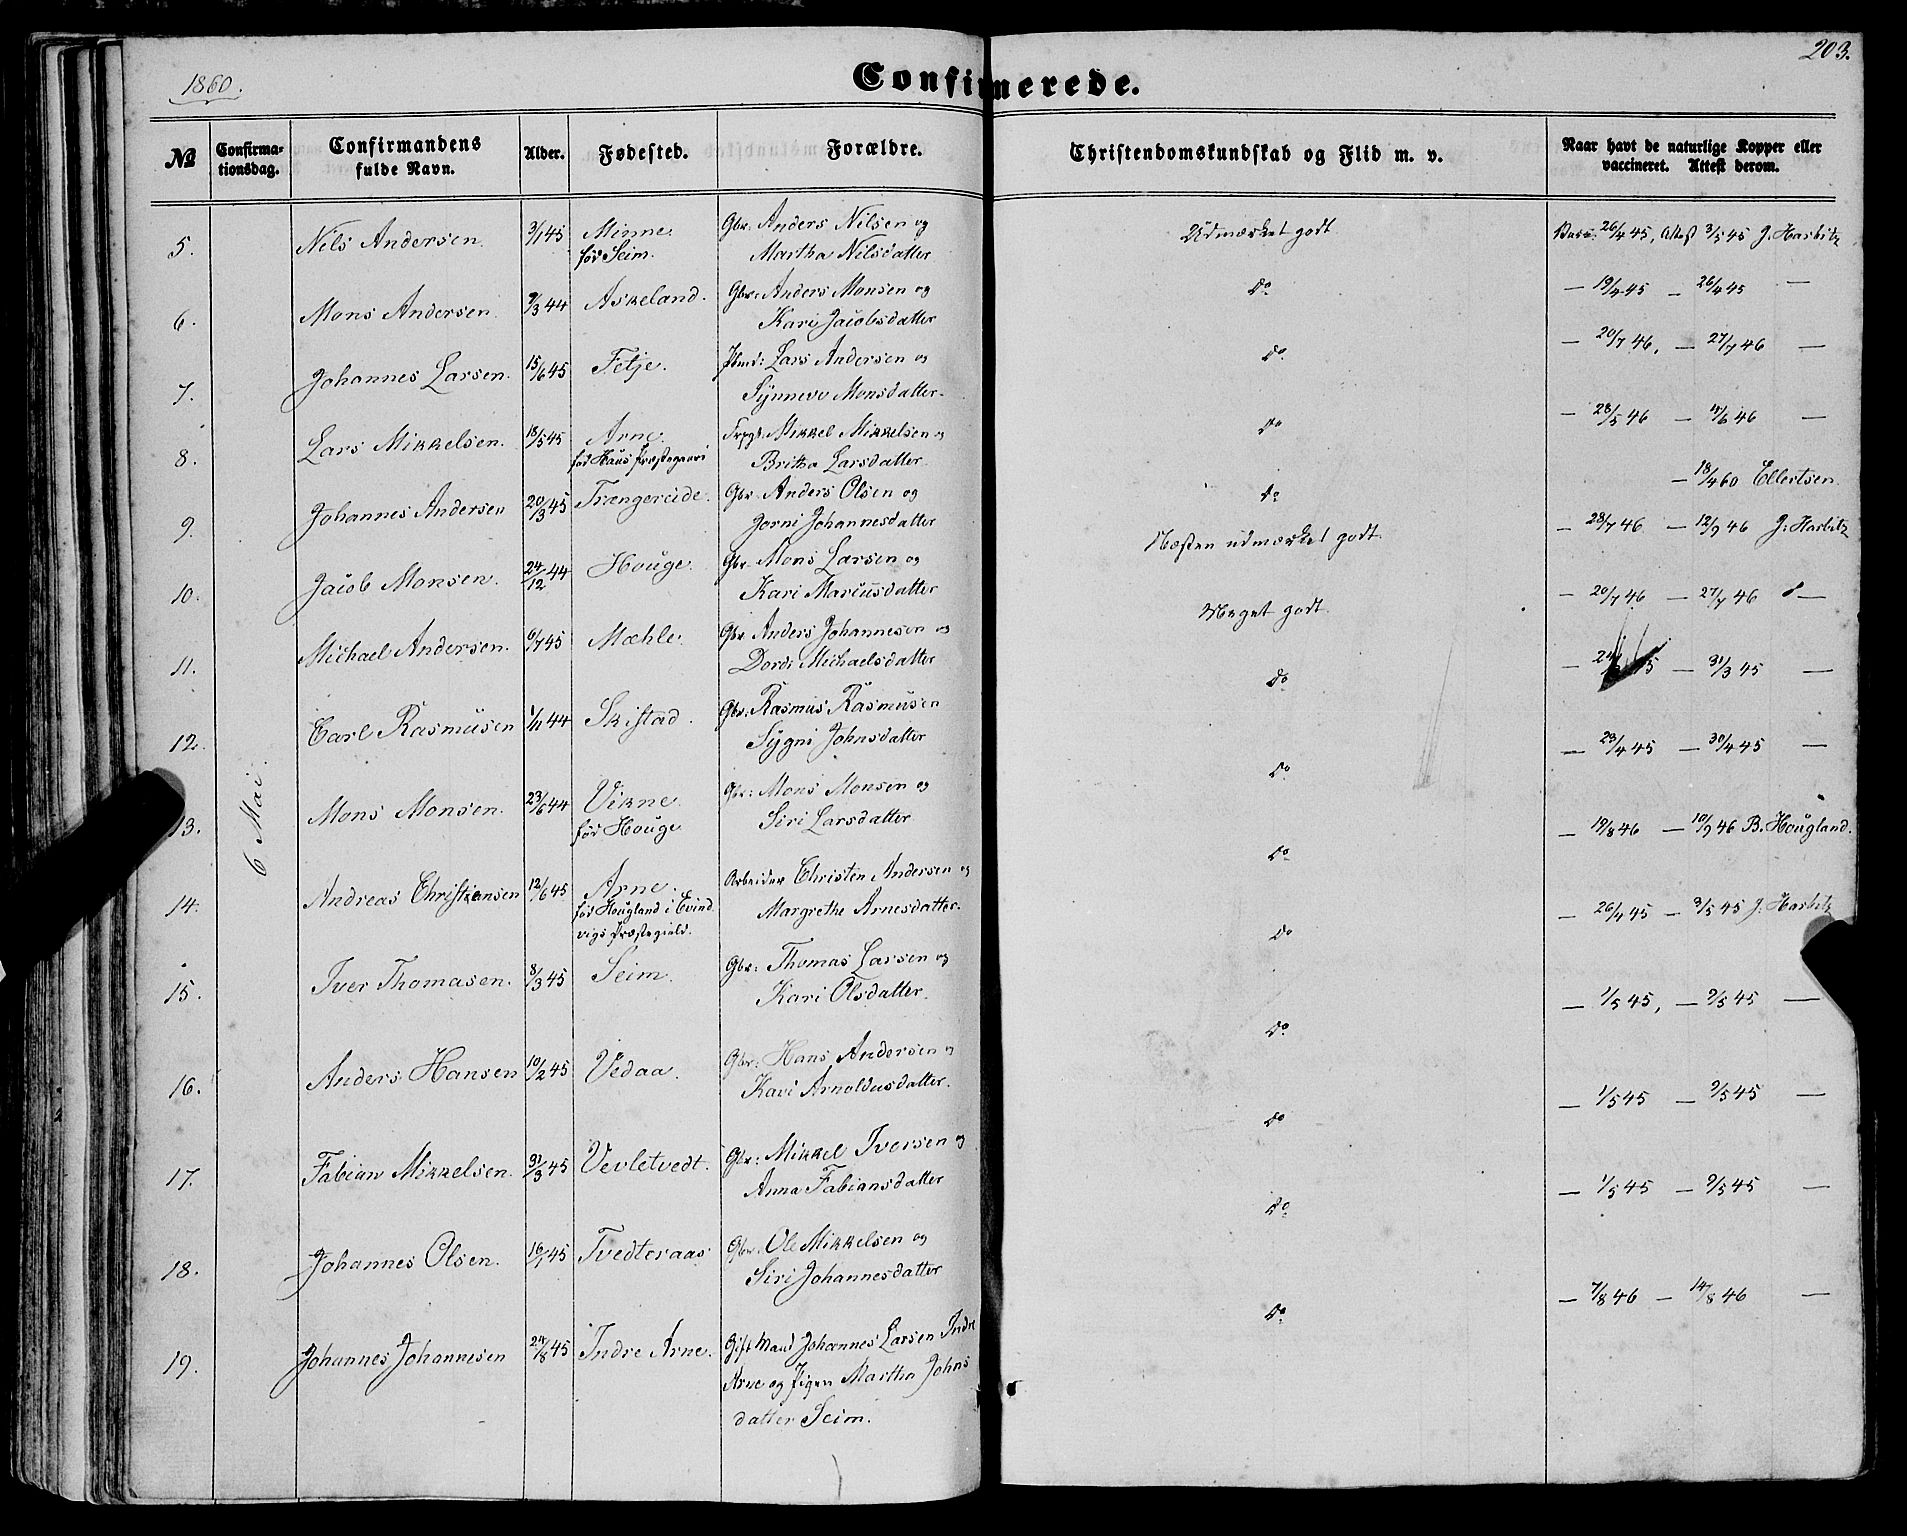 1860.
Confirmerede.
203.
No
Confirma-
tionsdag.
Confirmandens
fulde Navn.
Alder.
Fødested.
Forældre.
Christendomskundskab og Flid m. v.
Naar havt de naturlige Kopper eller
vaccineret. Attest derom.
6 Mai.
5. Nels Andersen. 3/1 45 Minne. Gbr. Anders Nilsen og Udmærket godt Vacc. 26/4 45, Attest 3/5 45 J. Harbitz
før Seim. Martha Nilsdatter
6. Mons Andersen. 9/3 44 Askeland. Gbr. Anders Monsen og do — 19/4 45 — 26/4 45 —
Kari Jacobsdatter
7. Johannes Larsen. 15/6 45 Fetje. Lars Andersen og do — 20/7 46, — 27/7 46 —
Synneve Monsdatter.
8. Lars Mikkelsen. 18/5 45 Arne. Mikkel Mikkelsen og do — 28/5 46 — 4/6 46 —
før Haus Præstegaard Britha Larsdatter.
9. Johannes Andersen 20/3 45 Trængereide. Gbr. Anders Olsen og do — 18/4 60 Ellertsen.
Jorni Johannesdatter
10. Jacob Monsen. 24/12 44 Houge. Gbr. Mons Larsen og Næsten udmærket godt. — 28/7 46 — 12/9 46 J. Harbitz
Kari Mariusdatter
11. Michael Andersen. 6/7 45 Mæhle. Gbr Anders Johannesen og Meget godt. — 20/7 46 — 27/7 46 —
Dordi Michaelsdatter
12. Carl Rasmusen 1/11 44 Skistad. Gbr. Rasmus Rasmusen do — 45 — 31/3 45 —
Sygni Johnsdatter
13. Mons Monsen. 23/6 44 Vikne. Gbr: Mons Monsen og do — 23/4 45 — 30/4 45 —
før Houge Siri Larsdatter.
14. Andreas Christiansen 12/6 45 Arne. Arbeider Christen Andersen og do — 19/8 46 — 10/9 46 B. Hougland.
før Hougland i Evind- Margrethe Arnesdatter.
vigs Præstegield.
15. Iver Thomasen. 8/3 45 Seim. Gbr: Thomas Larsen og do — 26/4 45 — 3/5 45 J. Harbitz
Kari Olsdatter.
16. Anders Hansen 10/2 45 Vedaa. Gbr: Hans Andersen og do — 1/5 45, — 9/5 45 —
Kari Arnoldusdatter.
17. Fabian Mikkelsen. 31/3 45 Vevletvedt. Gbr: Mikkel Iversen og do — 1/5 45 — 9/5 45 —
Anna Fabiansdatter
18. Johannes Olsen. 16/1 45 Tvedteraas Gbr. Ole Mikkelsen og do — 1/5 45 — 9/5 45 —
Siri Johannesdatter
19. Johannes Johannesen 24/8 45 Indre Arne. Gift Mand Johannes Larsen Indre do — 7/8 46 — 14/8 46 —
Arne og Pigen Martha Johns
datter Seim.